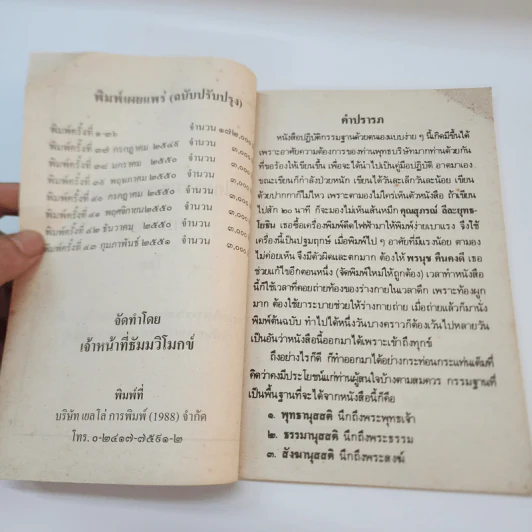 พิมพ์เผยแพร่ (ฉบับปรับปรุง)
พิมพ์ครั้งที่ ๑-๓๖ จำนวน ๑๗๒,๐๐๐
พิมพ์ครั้งที่ ๓๗ กรกฎาคม ๒๕๔๙ จำนวน ๓,๐๐๐
พิมพ์ครั้งที่ ๓๘ มกราคม ๒๕๕๐ จำนวน ๓,๐๐๐
พิมพ์ครั้งที่ ๓๙ พฤษภาคม ๒๕๕๐ จำนวน ๓,๐๐๐
พิมพ์ครั้งที่ ๔๐ กรกฎาคม ๒๕๕๐ จำนวน ๓,๐๐๐
พิมพ์ครั้งที่ ๔๑ พฤศจิกายน๒๕๕๐ จำนวน ๓,๐๐๐
พิมพ์ครั้งที่ ๔๒ ธันวาคม ๒๕๕๐ จำนวน ๓,๐๐๐
พิมพ์ครั้งที่ ๔๓ กุมภาพันธ์ ๒๕๕๑ จำนวน ๓,๐๐๐
จัดทำโดย
เจ้าหน้าที่ธัมมวิโมกข์
พิมพ์ที่
บริษัท เยลโล่ การพิมพ์ (1988) จำกัด
โทร. ๐-๒๔๑๗-๗๕๙๑-๒
คำปรารภ
หนังสือปฏิบัติกรรมฐานด้วยตนเองแบบง่าย ๆ นี้เกิดมีขึ้นได้
เพราะอาศัยความต้องการของท่านพุทธบริษัทมากท่านด้วยกัน
ที่ขอร้องให้เขียนขึ้น เพื่อจะได้นำไปเป็นคู่มือปฏิบัติ อาตมาเอง
ขณะเขียนก็กำลังป่วยหนัก เขียนได้วันละเล็กวันละน้อย เขียน
ด้วยปากกาก็ไม่ไหว เพราะตามองไม่ใคร่เห็นตัวหนังสือ ถ้าเขียน
ไปสัก ๒๐ นาที ก็จะมองไม่เห็นเส้นหมึก คุณสุภรณ์ ลีละยุทธ-
โยธิน เธอซื้อเครื่องพิมพ์ดีดไฟฟ้ามาให้พิมพ์ง่ายเบาแรง จึงใช้
เครื่องนี้เป็นปฐมฤกษ์ เมื่อพิมพ์ไป ๆ อาศัยที่มีแรงน้อย ตามอง
ไม่ค่อยเห็น จึงมีตัวผิดและตกมาก ต้องให้ พรนุช คืนคงดี เธอ
ช่วยแก้ไขอีกตอนหนึ่ง (จัดพิมพ์ใหม่ให้ถูกต้อง) เวลาทำหนังสือ
นี้ก็ใช้เวลาที่คอยถ่ายท้องของร่างกายในเวลาดึก เพราะท้องผูก
มาก ต้องใช้ยาระบายช่วยให้ร่างกายถ่าย เมื่อถ่ายแล้วก็มานั่ง
พิมพ์ต้นฉบับ ทำไปได้หนึ่งวันบางคราวก็ต้องเว้นไปหลายวัน
เป็นอันว่าหนังสือนี้ออกมาได้เพราะเข้าถึงทุกข์
ถึงอย่างไรก็ดี ก็ทำออกมาได้อย่างกระท่อนกระแท่นเต็มที่
คิดว่าคงมีประโยชน์แก่ท่านผู้สนใจบ้างตามสมควร กรรมฐานที่
เป็นพื้นฐานที่จะได้จากหนังสือนี้ก็คือ
๑. พุทธานุสสติ นึกถึงพระพุทธเจ้า
๒. ธรรมานุสสติ นึกถึงพระธรรม
๓. สังฆานุสสติ นึกถึงพระสงฆ์